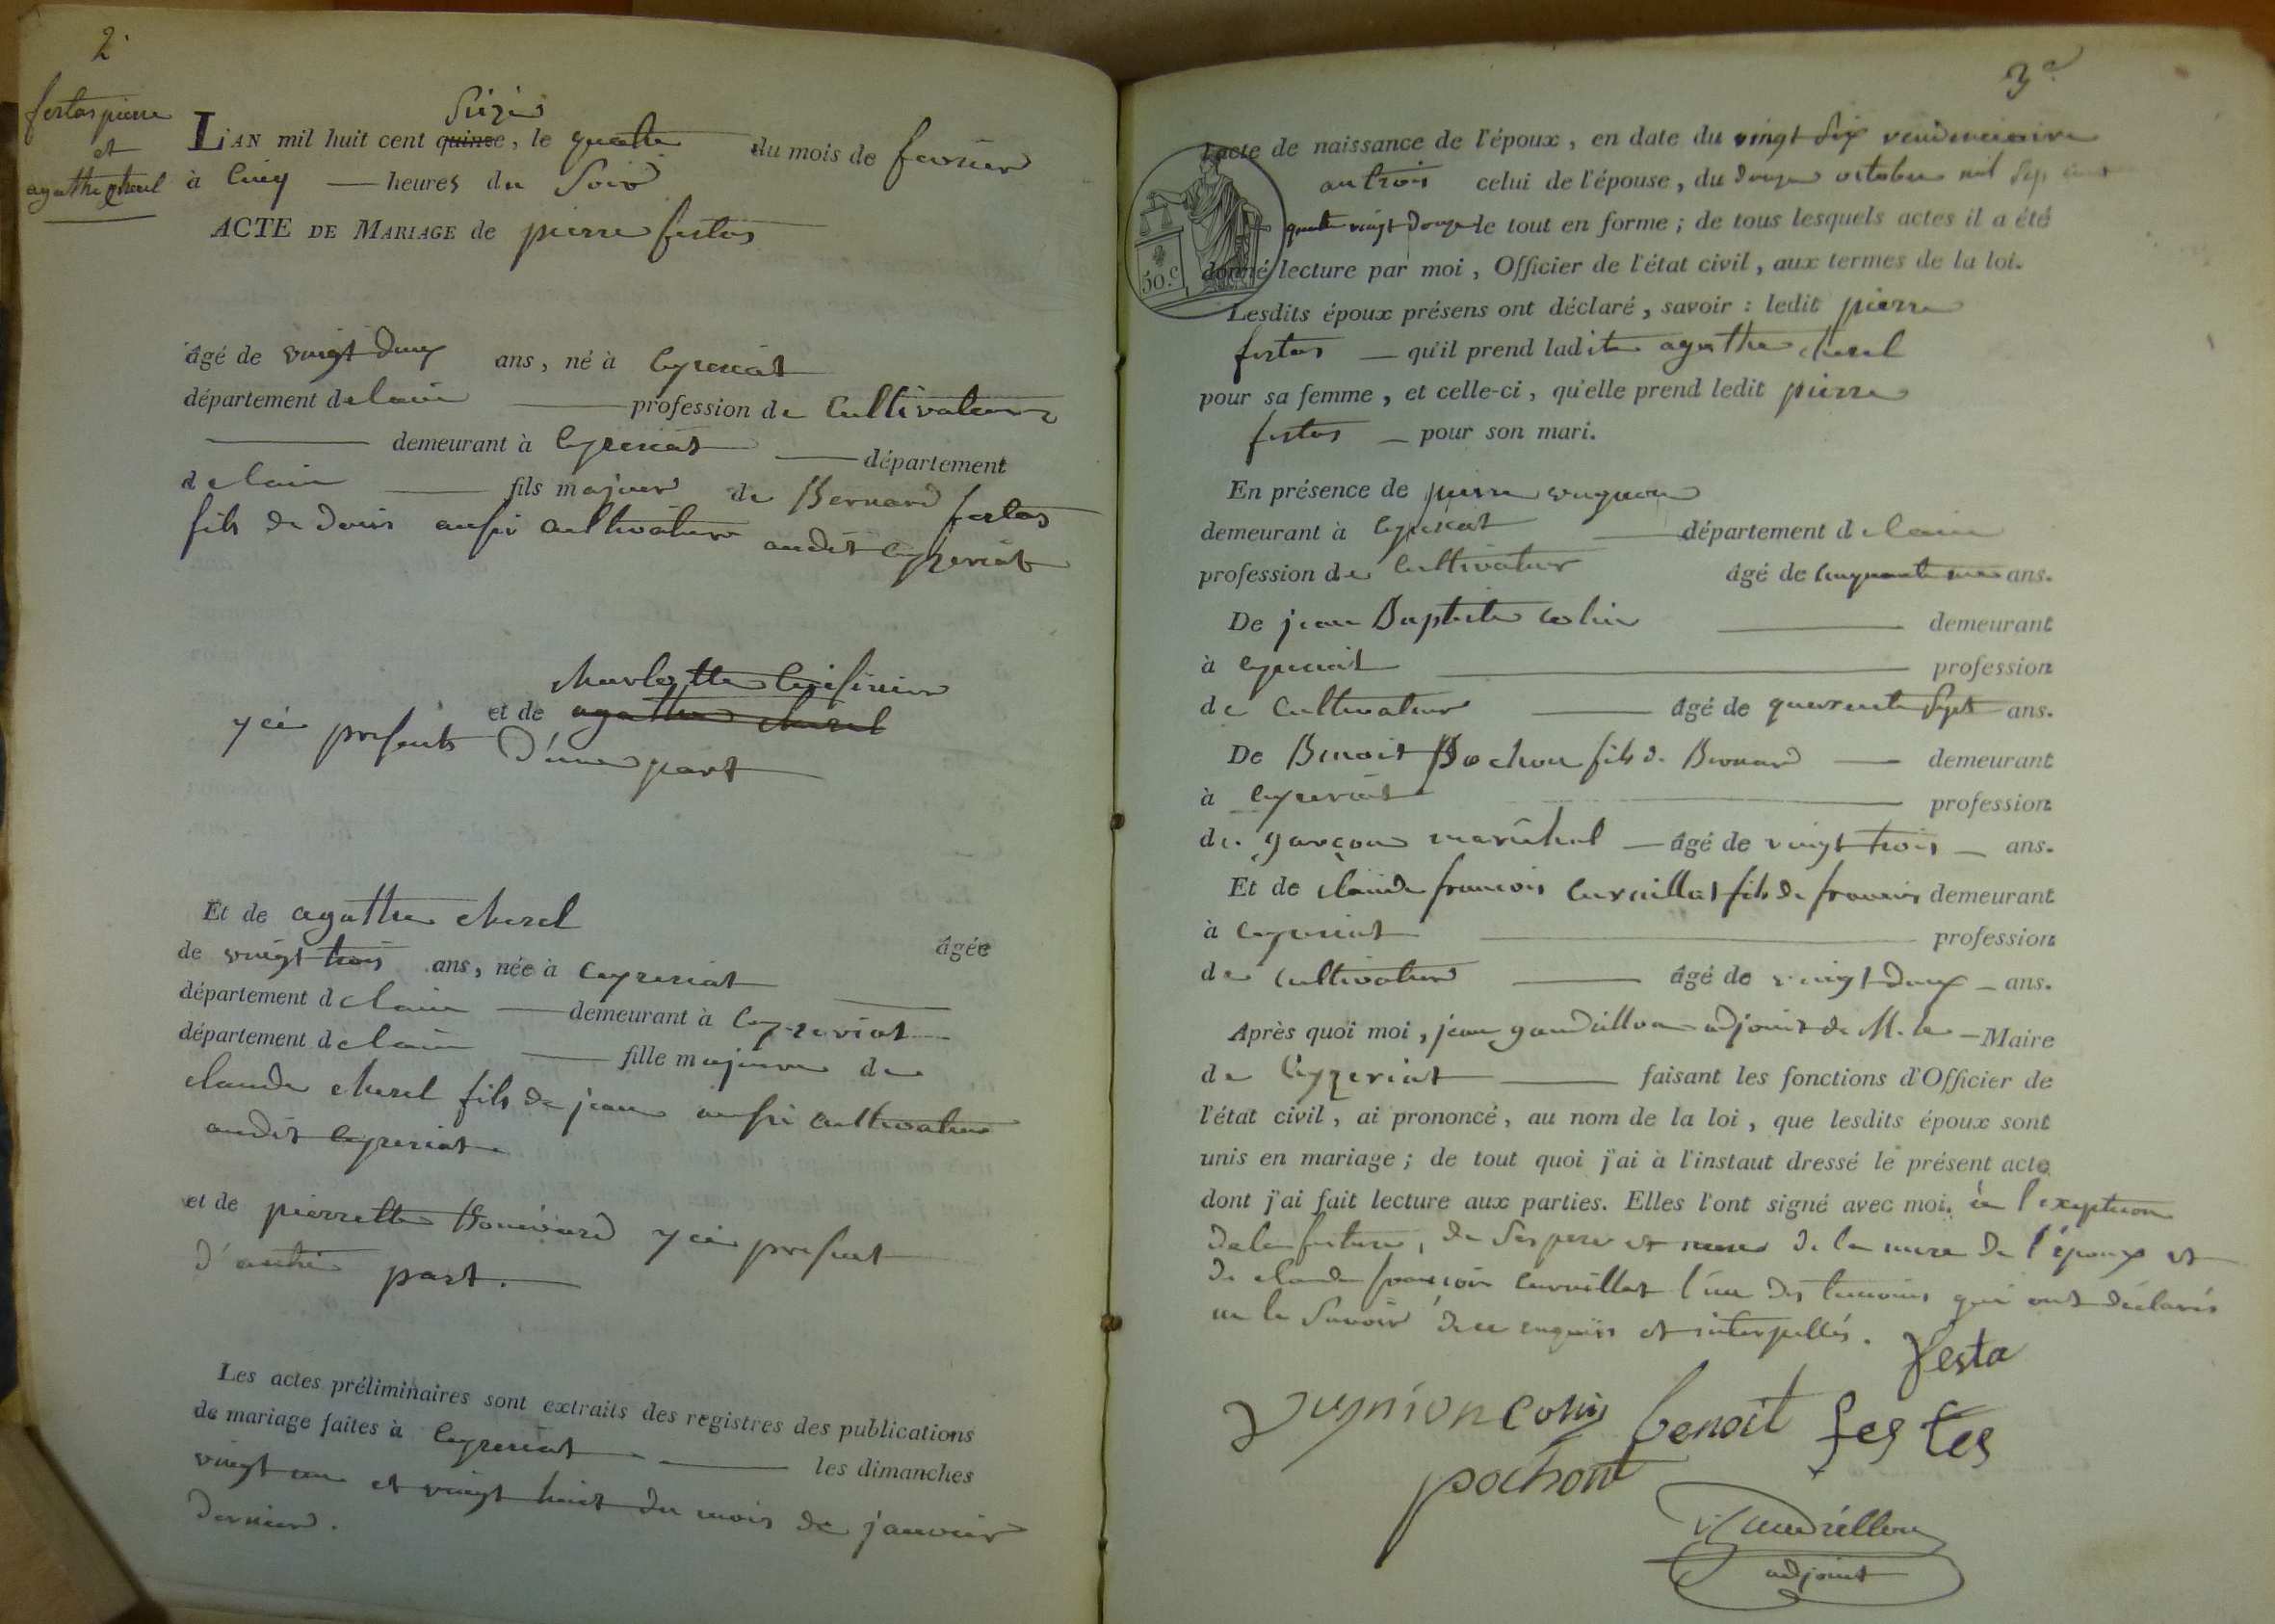 2.
festas pierre
et
agathe cherel
Seize
L'AN mil huit cent quinze, le quatre du mois de fevrier
à Cinq heures du Soir
ACTE DE MARIAGE de pierre festas
âgé de vingt deux ans, né à Ceyzeriat
département de lain profession de Cultivateur
demeurant à Ceyzeriat département
de lain fils majeur de Bernard festas
fils de Denis aussi cultivateur audit Ceyzeriat
charlotte Cuisinier
et de agathe cherel
y ci presents d'une part
Et de agathe cherel
âgée
de vingt trois ans, née à Ceyzeriat
département de lain demeurant à Ceyzeriat
département de lain fille majeure de
claude cherel fils de jean aussi cultivateur
audit Ceyzeriat
et de pierrette y ci present
d'autre part.
Les actes préliminaires sont extraits des registres des publications
de mariage faites à Ceyzeriat les dimanches
vingt un et vingt huit du mois de janvier
dernier.
3e
l'acte de naissance de l'époux, en date du vingt six vendemiaire
an trois celui de l'épouse, du douze octobre mil sept cent
quatre vingt douze le tout en forme; de tous lesquels actes il a été
donné lecture par moi, Officier de l'état civil, aux termes de la loi.
50.C
Lesdits époux présens ont déclaré, savoir : ledit pierre
festas qu'il prend ladite agathe cherel
pour sa femme, et celle-ci, qu'elle prend ledit pierre
festas pour son mari.
En présence de pierre vugnon
demeurant à Ceyzeriat département de lain
profession de Cultivateur âgé de cinquante un ans.
De jean Baptiste colin demeurant
à Ceyzeriat profession
de Cultivateur âgé de quarente sept ans.
De Benoit Pochon fils de Bernard demeurant
à Ceyzeriat profession
de garçon maréchal âgé de vingt trois ans.
Et de claude françois Curnillat fils de francois demeurant
à Ceyzeriat profession
de cultivateur âgé de vingt deux ans.
Après quoi moi, jean gaudrillon adjoint de M. le Maire
de Ceyzeriat faisant les fonctions d'Officier de
l'état civil, ai prononcé, au nom de la loi, que lesdits époux sont
unis en mariage; de tout quoi j'ai à l'instaut dressé le présent acte
dont j'ai fait lecture aux parties. Elles l'ont signé avec moi, à l'exeption
de la future, de Ses pere et mere de la mere de l'époux et
de claude françois Curnillat l'un des temoins qui ont déclarés
ne le Savoir de ce enquis et interpellés.
festa
Vugnion Colin benoit festes
pochont
Gaudrillon
adjoint